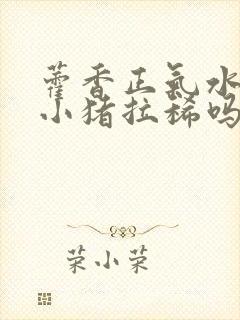 藿香正氣水
小猪拉稀吗
荣小荣